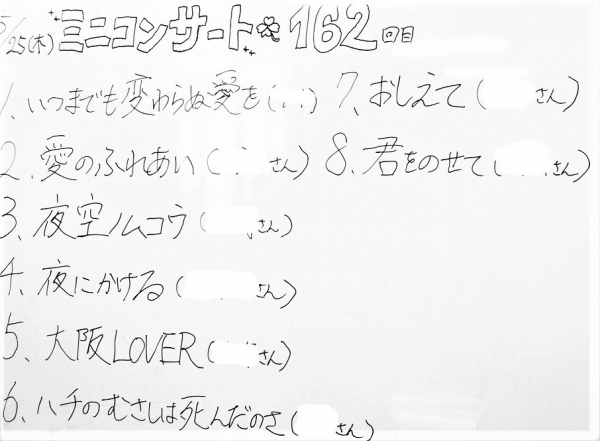 5/25(木) ミニコンサート 162回目
1、いつまでも変わらぬ愛を( )
2、愛のふれあい( さん)
3、夜空ノムコウ( さん)
4、夜にかける( さん)
5、大阪LOVER( さん)
6、ハチのむさしは死んだのさ( さん)
7、おしえて( さん)
8、君をのせて( さん)